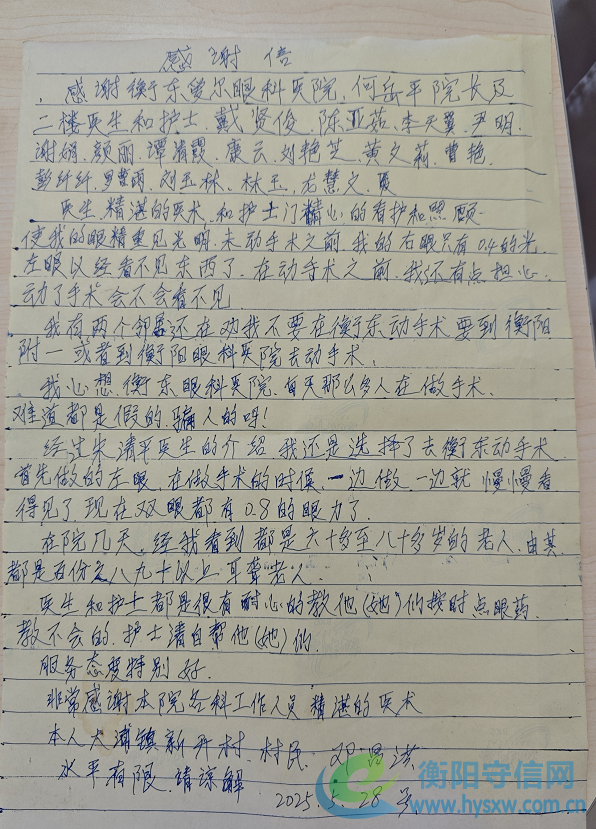 感谢信
感谢衡东爱尔眼科医院、何岳平院长及
二楼医生和护士、戴贤俊、陈亚茹、李天翼、尹明、
谢娟、颜丽、谭清霞、康云、刘艳芝、黄文莉、曹艳、
彭纤纤、罗雨、刘玉林、林玉、尤慧文、夏
医生、精湛的医术、和护士门精心的看护和照顾
使我的眼精重见光明、未动手术之前、我的右眼只有0.4的光
左眼以经看不见东西了、在动手术之前、我还有点担心、
动了手术会不会看不见
我有两个邻居还在劝我不要在衡东动手术、要到衡阳
附一或者到衡阳眼科医院去动手术、
我心想、衡东眼科医院、每天那么多人在做手术、
难道都是假的、骗人的呀!
经过朱清平医生的介绍、我还是选择了去衡东动手术、
首先做的左眼、在做手术的时候、一边做、一边就慢慢看
得见了、现在双眼都有0.8的眼力了、
在院几天、经我看到都是六十多至八十多岁的老人、由其
都是百份之八九十以上耳聋老人、
医生和护士都是很有耐心的教他(她)们按时点眼药、
教不会的、护士清自帮他(她)们、
服务态度特别好、
非常感谢本院各科工作人员精湛的医术
本人大浦镇新开村、村民、邓昌洪
水平有限、请谅解
2025.5.28号
衡阳守信网
www.hysxw.com.cn